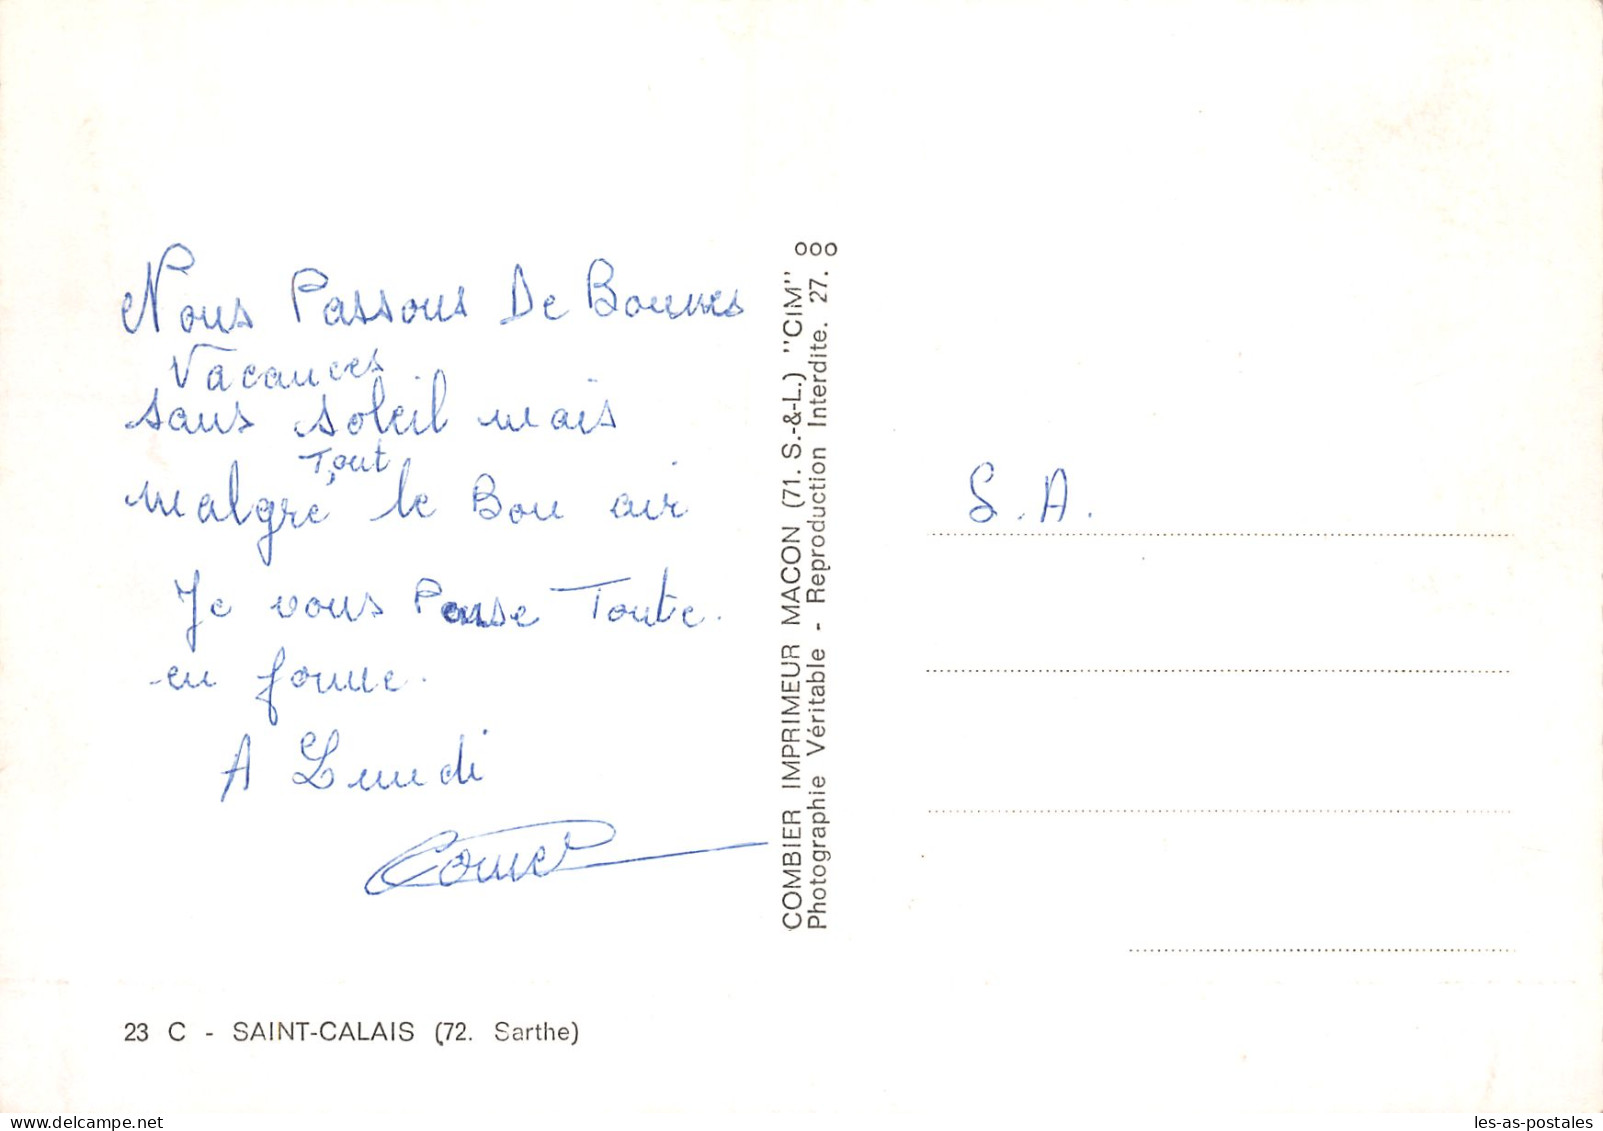 Nous Passons De Bonnes
Vacances
sans soleil mais
malgré Tout le Bon air
Je vous Pense Toute.
en forme.
A Lundi
S. A.
COMBIER IMPRIMEUR MACON (71. S.-&-L.) "CIM"
Photographie Véritable - Reproduction Interdite. 27. ooo
23 C - SAINT-CALAIS (72. Sarthe)
les-as-postales